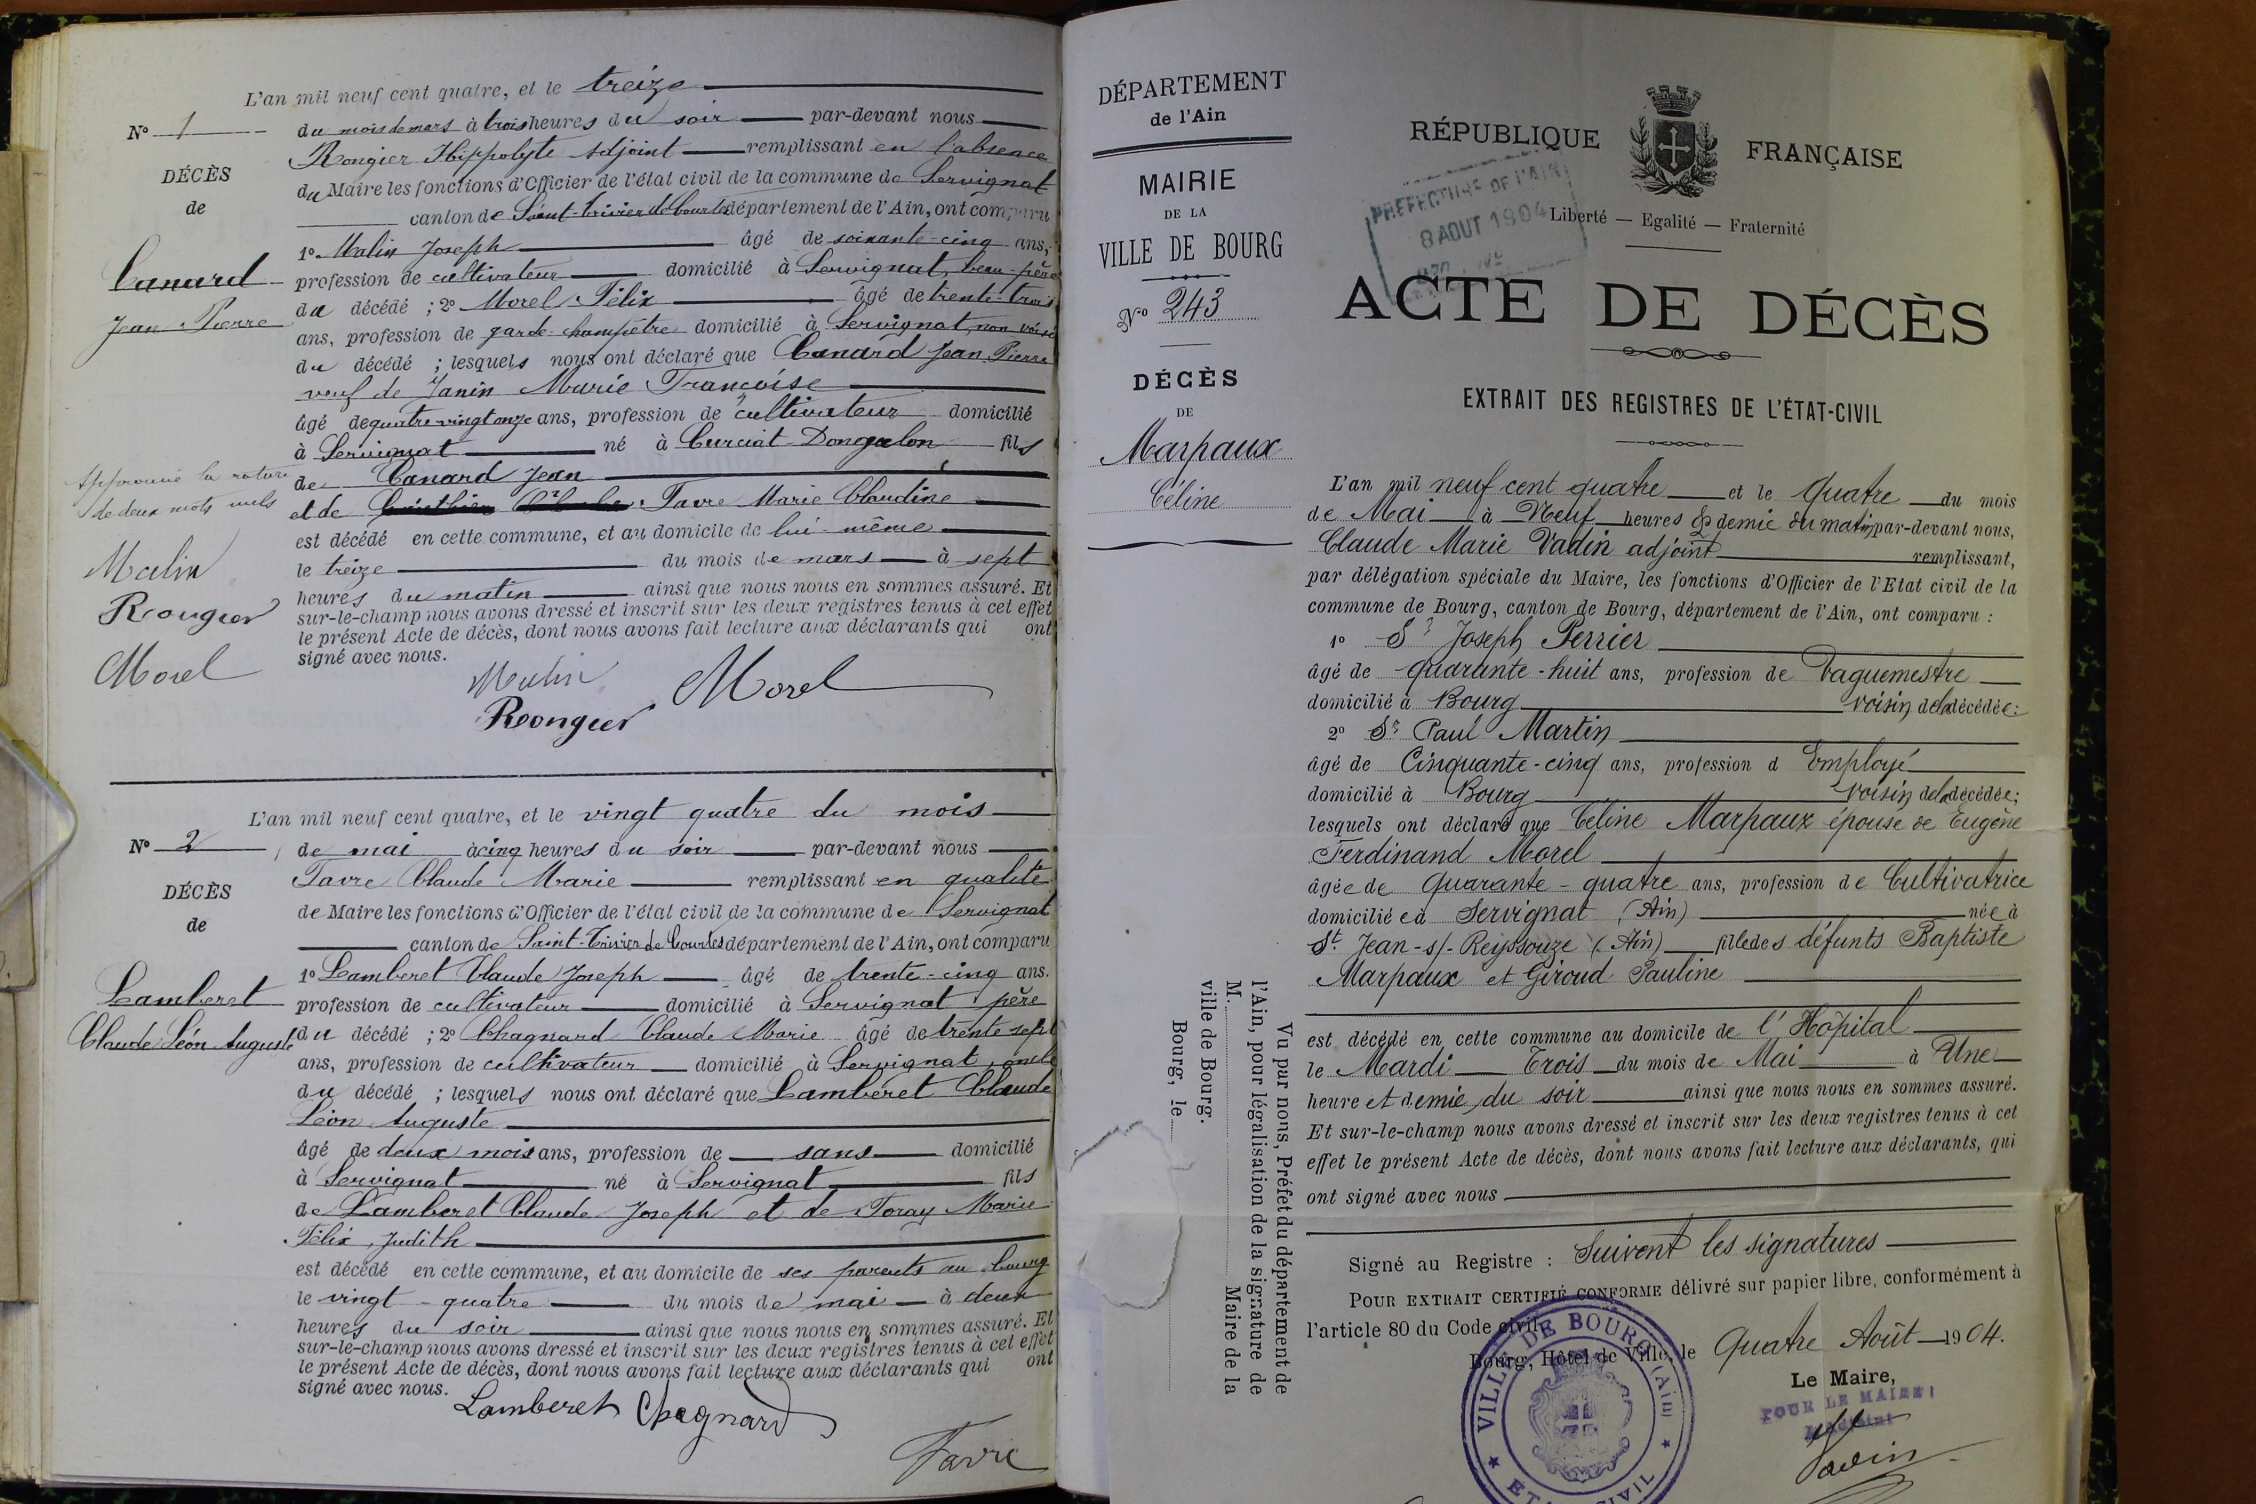 L'an mil neuf cent quatre, et le treize
N° 1
du mois de mars à trois heures du soir par-devant nous
Rongier Hippolyte adjoint remplissant en l'absence
DÉCÈS
du Maire les fonctions d'Officier de l'état civil de la commune de Servignat
de
canton de Saint-Trivier de Courtes département de l'Ain, ont comparu
1° Malin Joseph âgé de soixante-cinq ans,
Canard
Jean Pierre
profession de cultivateur domicilié à Servignat, beau-père
du décédé ; 2° Morel Félix âgé de trente-trois
ans, profession de garde-champêtre domicilié à Servignat, non voisin
du décédé ; lesquels nous ont déclaré que Canard Jean Pierre
veuf de Janin Marie Françoise
âgé de quatre vingt onze ans, profession de cultivateur domicilié
à Servignat né à Curciat-Dongalon fils
Approuvé la rature
de deux mots nuls
de Canard Jean
et de Favre Marie Claudine
est décédé en cette commune, et au domicile de lui-même
Malin
Rongier
Morel
le treize du mois de mars à sept
heures du matin ainsi que nous nous en sommes assuré. Et
sur-le-champ nous avons dressé et inscrit sur les deux registres tenus à cet effet
le présent Acte de décès, dont nous avons fait lecture aux déclarants qui ont
signé avec nous.
Malin
Morel
Rongier
L'an mil neuf cent quatre, et le vingt quatre du mois
N° 2
de mai à cinq heures du soir par-devant nous
Favre Claude Marie remplissant en qualité
DÉCÈS
de Maire les fonctions d'Officier de l'état civil de la commune de Servignat
de
canton de Saint-Trivier de Courtes département de l'Ain, ont comparu
1° Lamberet Claude Joseph âgé de trente-cinq ans.
Lamberet
Claude Léon Auguste
profession de cultivateur domicilié à Servignat père
du décédé ; 2° Chagnard Claude Marie âgé de trente sept
ans, profession de cultivateur domicilié à Servignat, oncle
du décédé ; lesquels nous ont déclaré que Lamberet Claude
Léon Auguste
âgé de deux mois ans, profession de sans domicilié
à Servignat né à Servignat fils
de Lamberet Claude Joseph et de Foray Marie
Félix Judith
est décédé en cette commune, et au domicile de ses parents au bourg
le vingt-quatre du mois de mai à deux
heures du soir ainsi que nous nous en sommes assuré. Et
sur-le-champ nous avons dressé et inscrit sur les deux registres tenus à cet effet
le présent Acte de décès, dont nous avons fait lecture aux déclarants qui ont
signé avec nous.
Lamberet Chagnard
Favre
DÉPARTEMENT
de l'Ain
MAIRIE
DE LA
VILLE DE BOURG
N° 243
DÉCÈS
DE
Marpaux
Céline
Vu par nous, Préfet du département de
l'Ain, pour légalisation de la signature de
M. Maire de la
ville de Bourg.
Bourg, le
RÉPUBLIQUE FRANÇAISE
PRÉFECTURE DE L'AIN
8 AOUT 1904
Liberté — Egalité — Fraternité
ACTE DE DÉCÈS
EXTRAIT DES REGISTRES DE L'ÉTAT-CIVIL
L'an mil neuf cent quatre et le Quatre du mois
de Mai à Neuf heures & demie du matin, par-devant nous,
Claude Marie Vadin adjoint remplissant,
par délégation spéciale du Maire, les fonctions d'Officier de l'Etat civil de la
commune de Bourg, canton de Bourg, département de l'Ain, ont comparu :
1° Sr Joseph Perrier
âgé de quarante-huit ans, profession de Vaguemestre
domicilié à Bourg voisin de la décédée :
2° Sr Paul Martin
âgé de Cinquante-cinq ans, profession d Employé
domicilié à Bourg voisin de la décédée ;
lesquels ont déclaré que Céline Marpaux épouse de Eugène
Ferdinand Morel
âgée de Quarante-quatre ans, profession de Cultivatrice
domiciliée à Servignat (Ain) née à
St Jean-s/-Reyssouze (Ain) fille des défunts Baptiste
Marpaux et Giroud Pauline
est décédé en cette commune au domicile de l'Hôpital
le Mardi Trois du mois de Mai à Une
heure et demie du soir ainsi que nous nous en sommes assuré.
Et sur-le-champ nous avons dressé et inscrit sur les deux registres tenus à cet
effet le présent Acte de décès, dont nous avons fait lecture aux déclarants, qui
ont signé avec nous
Signé au Registre : Suivent les signatures
POUR EXTRAIT CERTIFIÉ CONFORME délivré sur papier libre, conformément à
l'article 80 du Code civil.
Bourg, Hôtel de Ville, le Quatre Août 1904.
Le Maire,
POUR LE MAIRE
L'Adjoint
Vadin
VILLE DE BOURG (Ain)
ÉTAT CIVIL